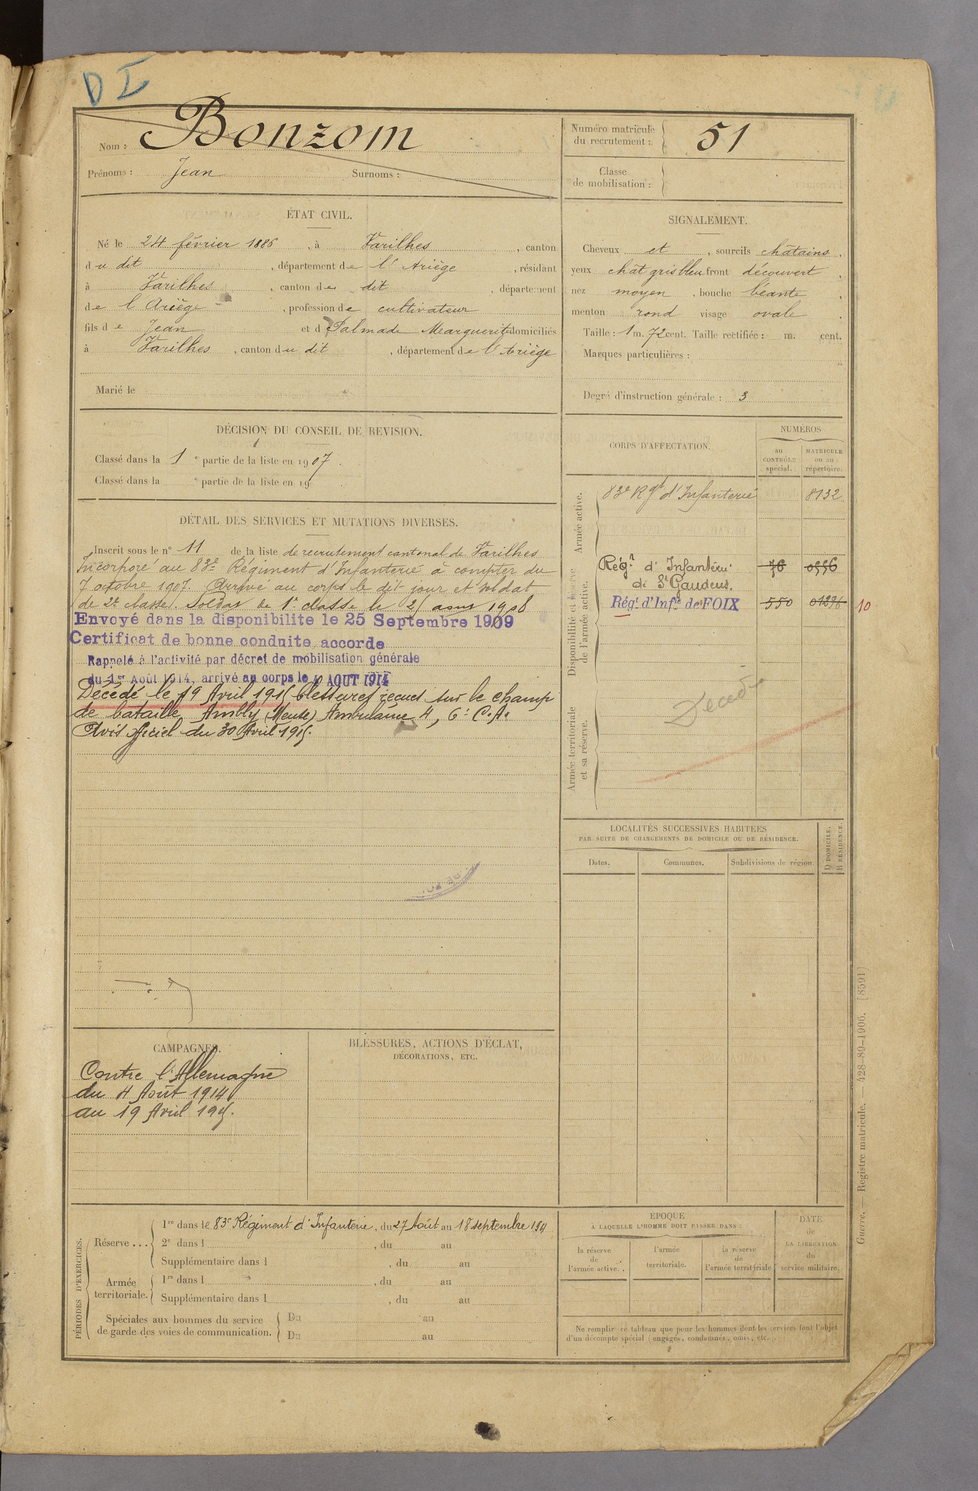 D I
Nom : Bonzom
Prénoms : Jean Surnoms :
Numéro matricule du recrutement : 51
Classe de mobilisation :
ÉTAT CIVIL.
Né le 24 février 1886, à Varilhes, canton
du dit, département de l'Ariège, résidant
à Varilhes, canton de dit, département
de l'Ariège, profession de cultivateur
fils de Jean et d Palmade Marguerite domiciliés
à Varilhes, canton du dit, département de l'Ariège
Marié le
SIGNALEMENT.
Cheveux et, sourcils châtains,
yeux chât gris bleu front découvert,
nez moyen, bouche béante,
menton rond visage ovale.
Taille : 1 m. 72 cent. Taille rectifiée : m. cent.
Marques particulières :
Degré d'instruction générale : 3
DÉCISION DU CONSEIL DE REVISION.
Classé dans la 1 e partie de la liste en 1907.
Classé dans la e partie de la liste en 19
DÉTAIL DES SERVICES ET MUTATIONS DIVERSES.
Inscrit sous le n° 11 de la liste de recrutement cantonal de Varilhes
Incorporé au 83e Régiment d'Infanterie à compter du
7 octobre 1907. Arrivé au corps le dit jour et soldat
de 2e classe. Soldat de 1e classe le 21 1908
Envoyé dans la disponibilité le 25 Septembre 1909
Certificat de bonne conduite accordé
Rappelé à l'activité par décret de mobilisation générale
du 1er Août 1914, arrivé au corps le AOUT 1914
Décédé le 19 Avril 1915 blessures reçues sur le champ
de bataille Ambly (Meuse) Ambulance 4, 6e C.A.
Avis officiel du 30 Avril 1915.
CORPS D'AFFECTATION.
NUMÉROS
AU CONTRÔLE spécial.
MATRICULE OU AU répertoire.
Armée active.
83e Rgt d'Infanterie 8132
Disponibilité et réserve de l'armée active.
Régt d'Infanterie
de St Gaudens
Régt d'Infie de FOIX 550
10
Armée territoriale et sa réserve.
Décédé
LOCALITÉS SUCCESSIVES HABITÉES
PAR SUITE DE CHANGEMENTS DE DOMICILE OU DE RÉSIDENCE.
Dates. Communes. Subdivisions de région
D DOMICILE.
R RÉSIDENCE.
CAMPAGNES.
Contre l'Allemagne
du 4 Août 1914
au 19 Avril 1915.
BLESSURES, ACTIONS D'ÉCLAT,
DÉCORATIONS, ETC.
PÉRIODES D'EXERCICES.
Réserve ...
1re dans le 83e Régiment d'Infanterie, du 27 Août au 18 septembre 191
2e dans l, du au
Supplémentaire dans l, du au
Armée territoriale.
1re dans l, du au
Supplémentaire dans l, du au
Spéciales aux hommes du service
de garde des voies de communication.
Du au
Du au
ÉPOQUE
À LAQUELLE L'HOMME DOIT PASSER DANS :
la réserve de l'armée active.
l'armée territoriale.
la réserve de l'armée territoriale
DATE
de
LA LIBÉRATION
du
service militaire.
Ne remplir ce tableau que pour les hommes dont les services font l'objet
d'un décompte spécial (engagés, condamnés, omis, etc.
Guerre. — Registre matricule. — 428-89-1906. [8591]